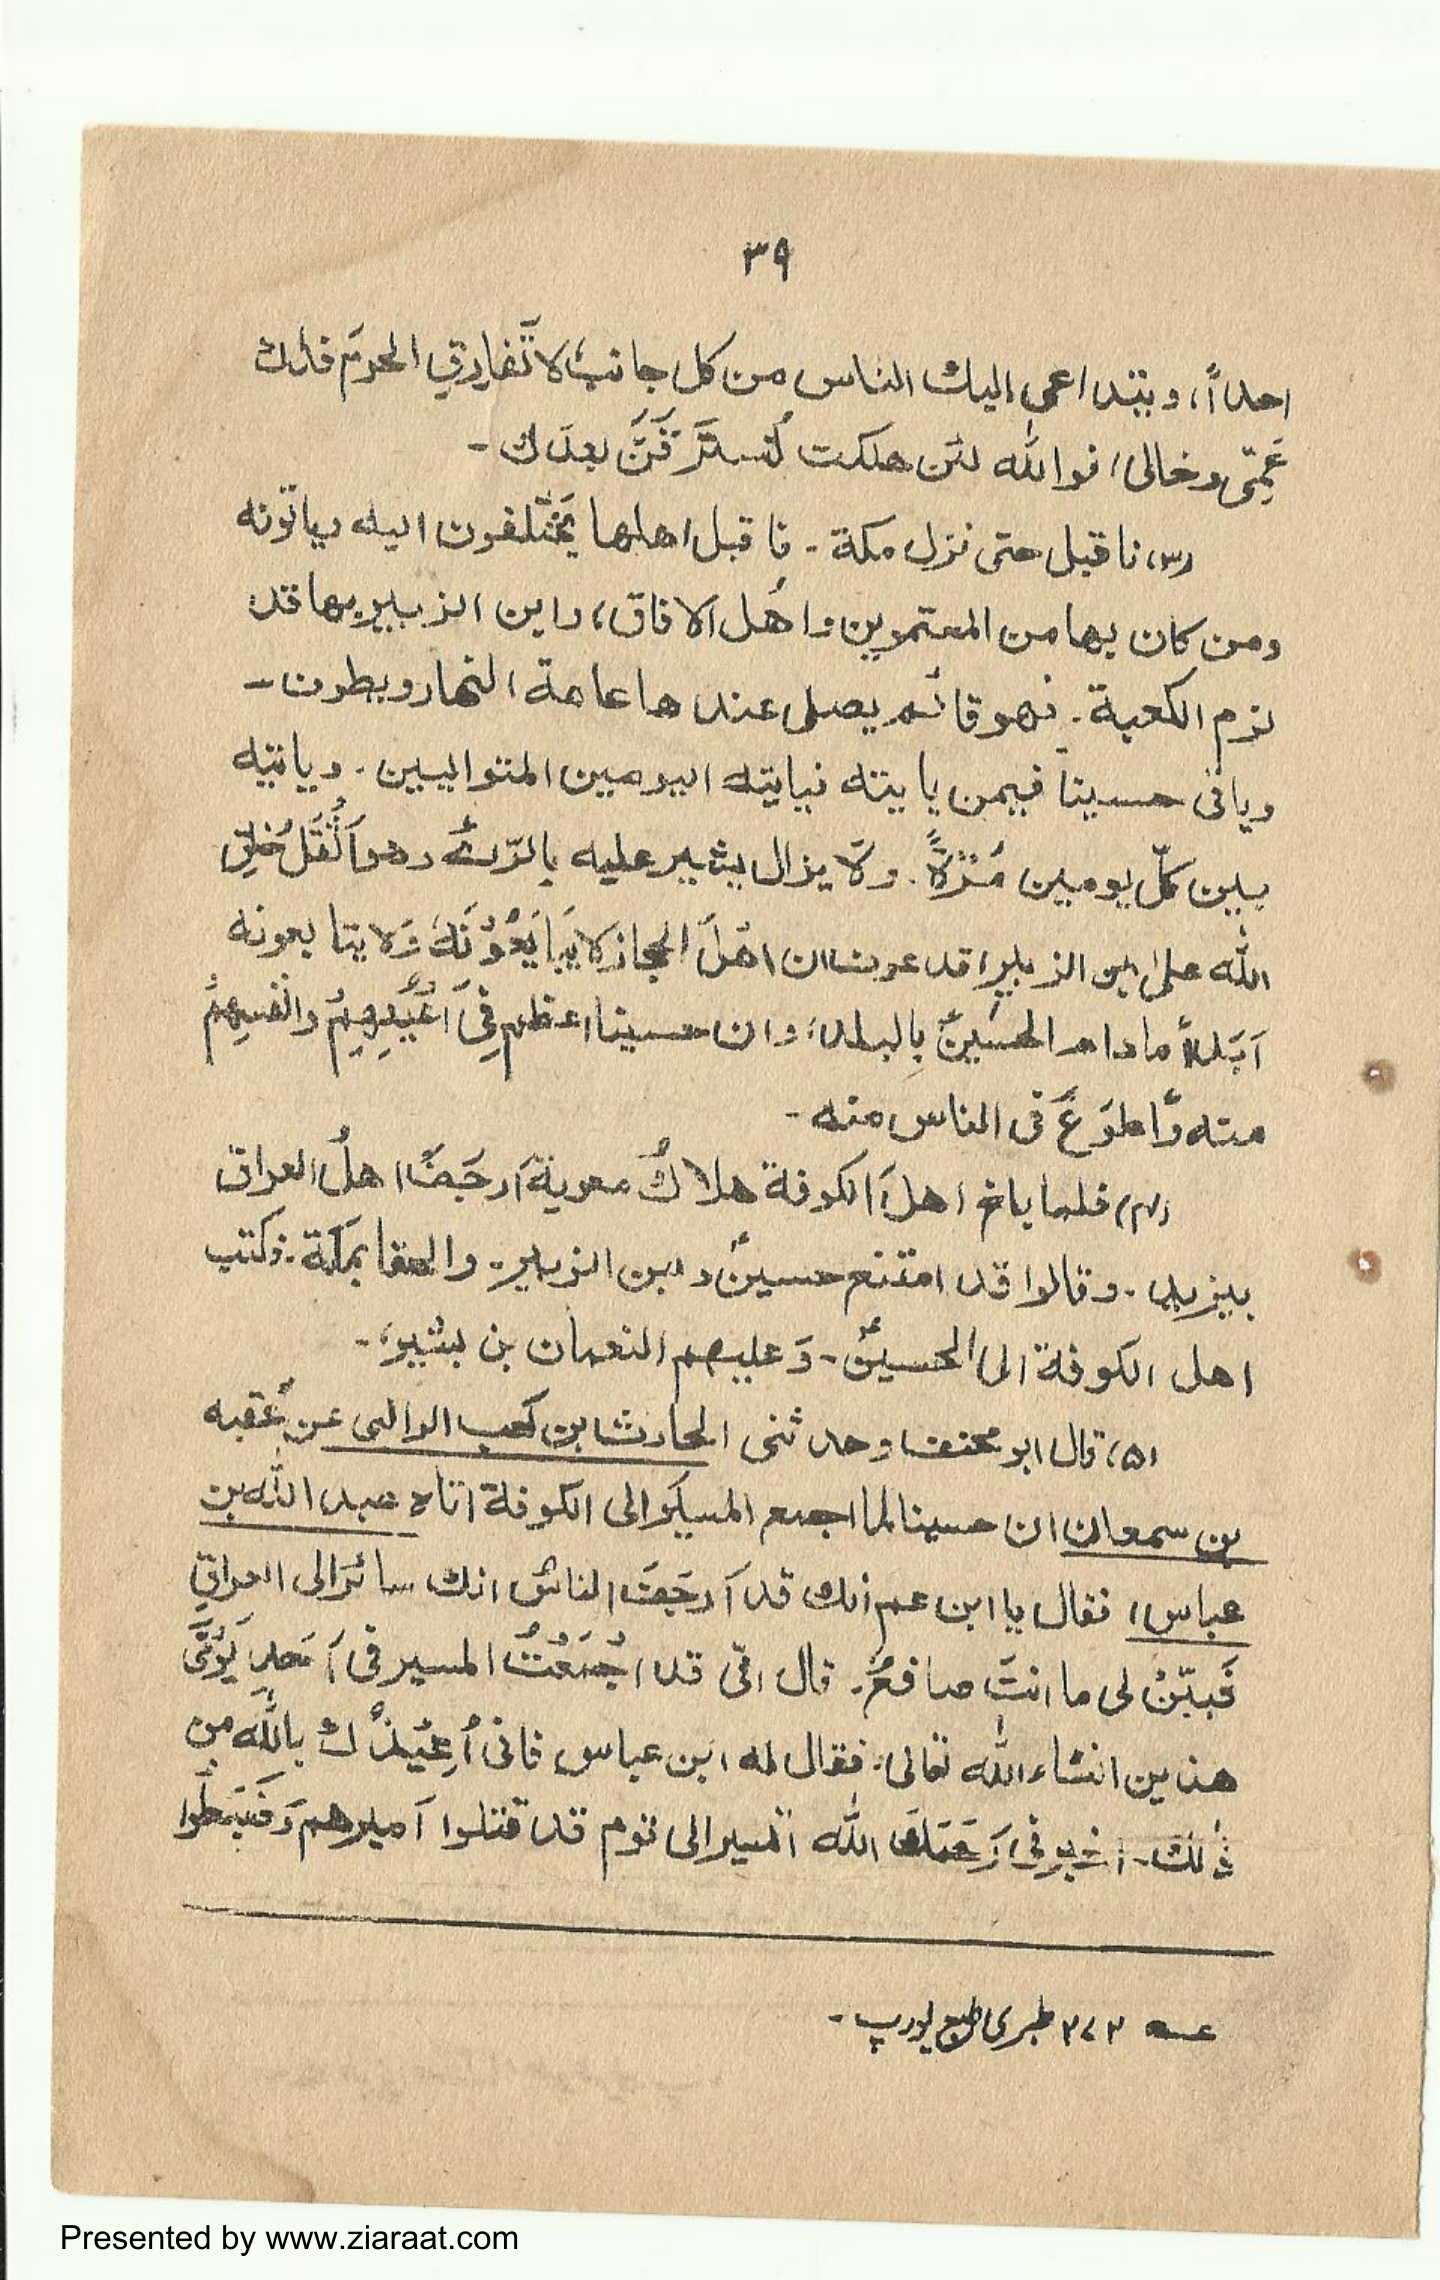 ٣٩
احداً، ويتداعى اليك الناس من كل جانب لا تُفارِقِ الحرمَ فداك
عَمِّى وخالى، فوالله لئن هلكت لَنُسترَقَّنَّ بعدك -
(٣) فاقبل حتى نزل مكة - فاقبل اهلها يَختلفون اليه وياتونه
ومن كان بها من المعتمرين واهل الافاق، وابن الزبير بها قد
لزم الكعبة - فهو قائم يصلى عندها عامة النهار ويطوف -
وياتى حسينا فيمن ياتيه فياتيه اليومين المتواليين - وياتيه
بين كلّ يومين مَرّةً - ولا يزال يشير عليه بالرّائے وهو اَثْقَلُ خَلقِ
الله على ابن الزبير، قد عرف ان اهلَ الحجاز لا يُبَايَعُوْنَهٗ ولا يتابعونه
اَبَداً ما دام الحسينؑ بالبلد، وان حسينا اعظم فِىْ اَعْيُنِهِمْ وانفسِهِمْ
منه واطوَعَ فى الناس منه -
(٤) فلما بلغ اهلَ الكوفة هلاكُ معوية اَرجَفَ اهلُ العراق
بيزيد - وقالوا قد امتنع حسينؑ وابن الزبير - والحقا بمكة - فكتب
اهل الكوفة الى الحسينؑ - وَعليهم النعمان بن بشير، -
(۵) قال ابو مخنف وحدثنى الحارث بن كعب الوالبى عن عُقبه
بن سمعان ان حسينا لما اجمع المسير الى الكوفة اتاه عبد الله بن
عباس، فقال يا ابن عم انك قد اَرجَفَ الناسُ انك سائر الى العراق
فَبيّنْ لى ما انتَ صانعٌ - قال انّى قد اَجْمَعْتُ المسير فى اَحدِ يَوْمَىَّ
هذين انشاء الله تعالى، فقال له ابن عباس فانى اُعِيْذُكَ بالله من
ذلك - اخبرنى رَحمَكَ الله اتسير الى قوم قد قتلوا اَميرهم وَضَبَطُوا
عـه ٢٧٣ طبرى طبع يورپ -
Presented by www.ziaraat.com